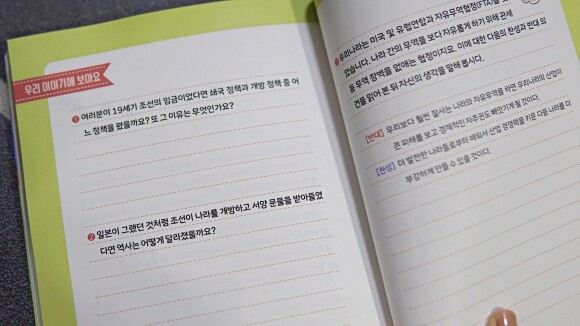 우리 이야기해 보아요
❶ 여러분이 19세기 조선의 임금이었다면 쇄국 정책과 개방 정책 중 어
느 정책을 폈을까요? 또 그 이유는 무엇인가요?
❷ 일본이 그랬던 것처럼 조선이 나라를 개방하고 서양 문물을 받아들였
다면 역사는 어떻게 달라졌을까요?
❸ 우리나라는 미국 및 유럽연합과 자유무역협정(FTA)을
었습니다. 나라 간의 무역을 보다 자유롭게 하기 위해 관세
등 무역 장벽을 없애는 협정이지요. 이에 대한 다음의 찬성과 반대 의
견을 읽어 본 뒤 자신의 생각을 말해 봅시다.
[반대] 우리보다 훨씬 잘사는 나라와 자유무역을 하면 우리나라의 산업이
큰 피해를 보고 경제적인 자주권도 빼앗기게 될 것이다.
[찬성] 더 발전한 나라들로부터 배워서 산업 경쟁력을 키운 다음 나라를 더
부강하게 만들 수 있을 것이다.